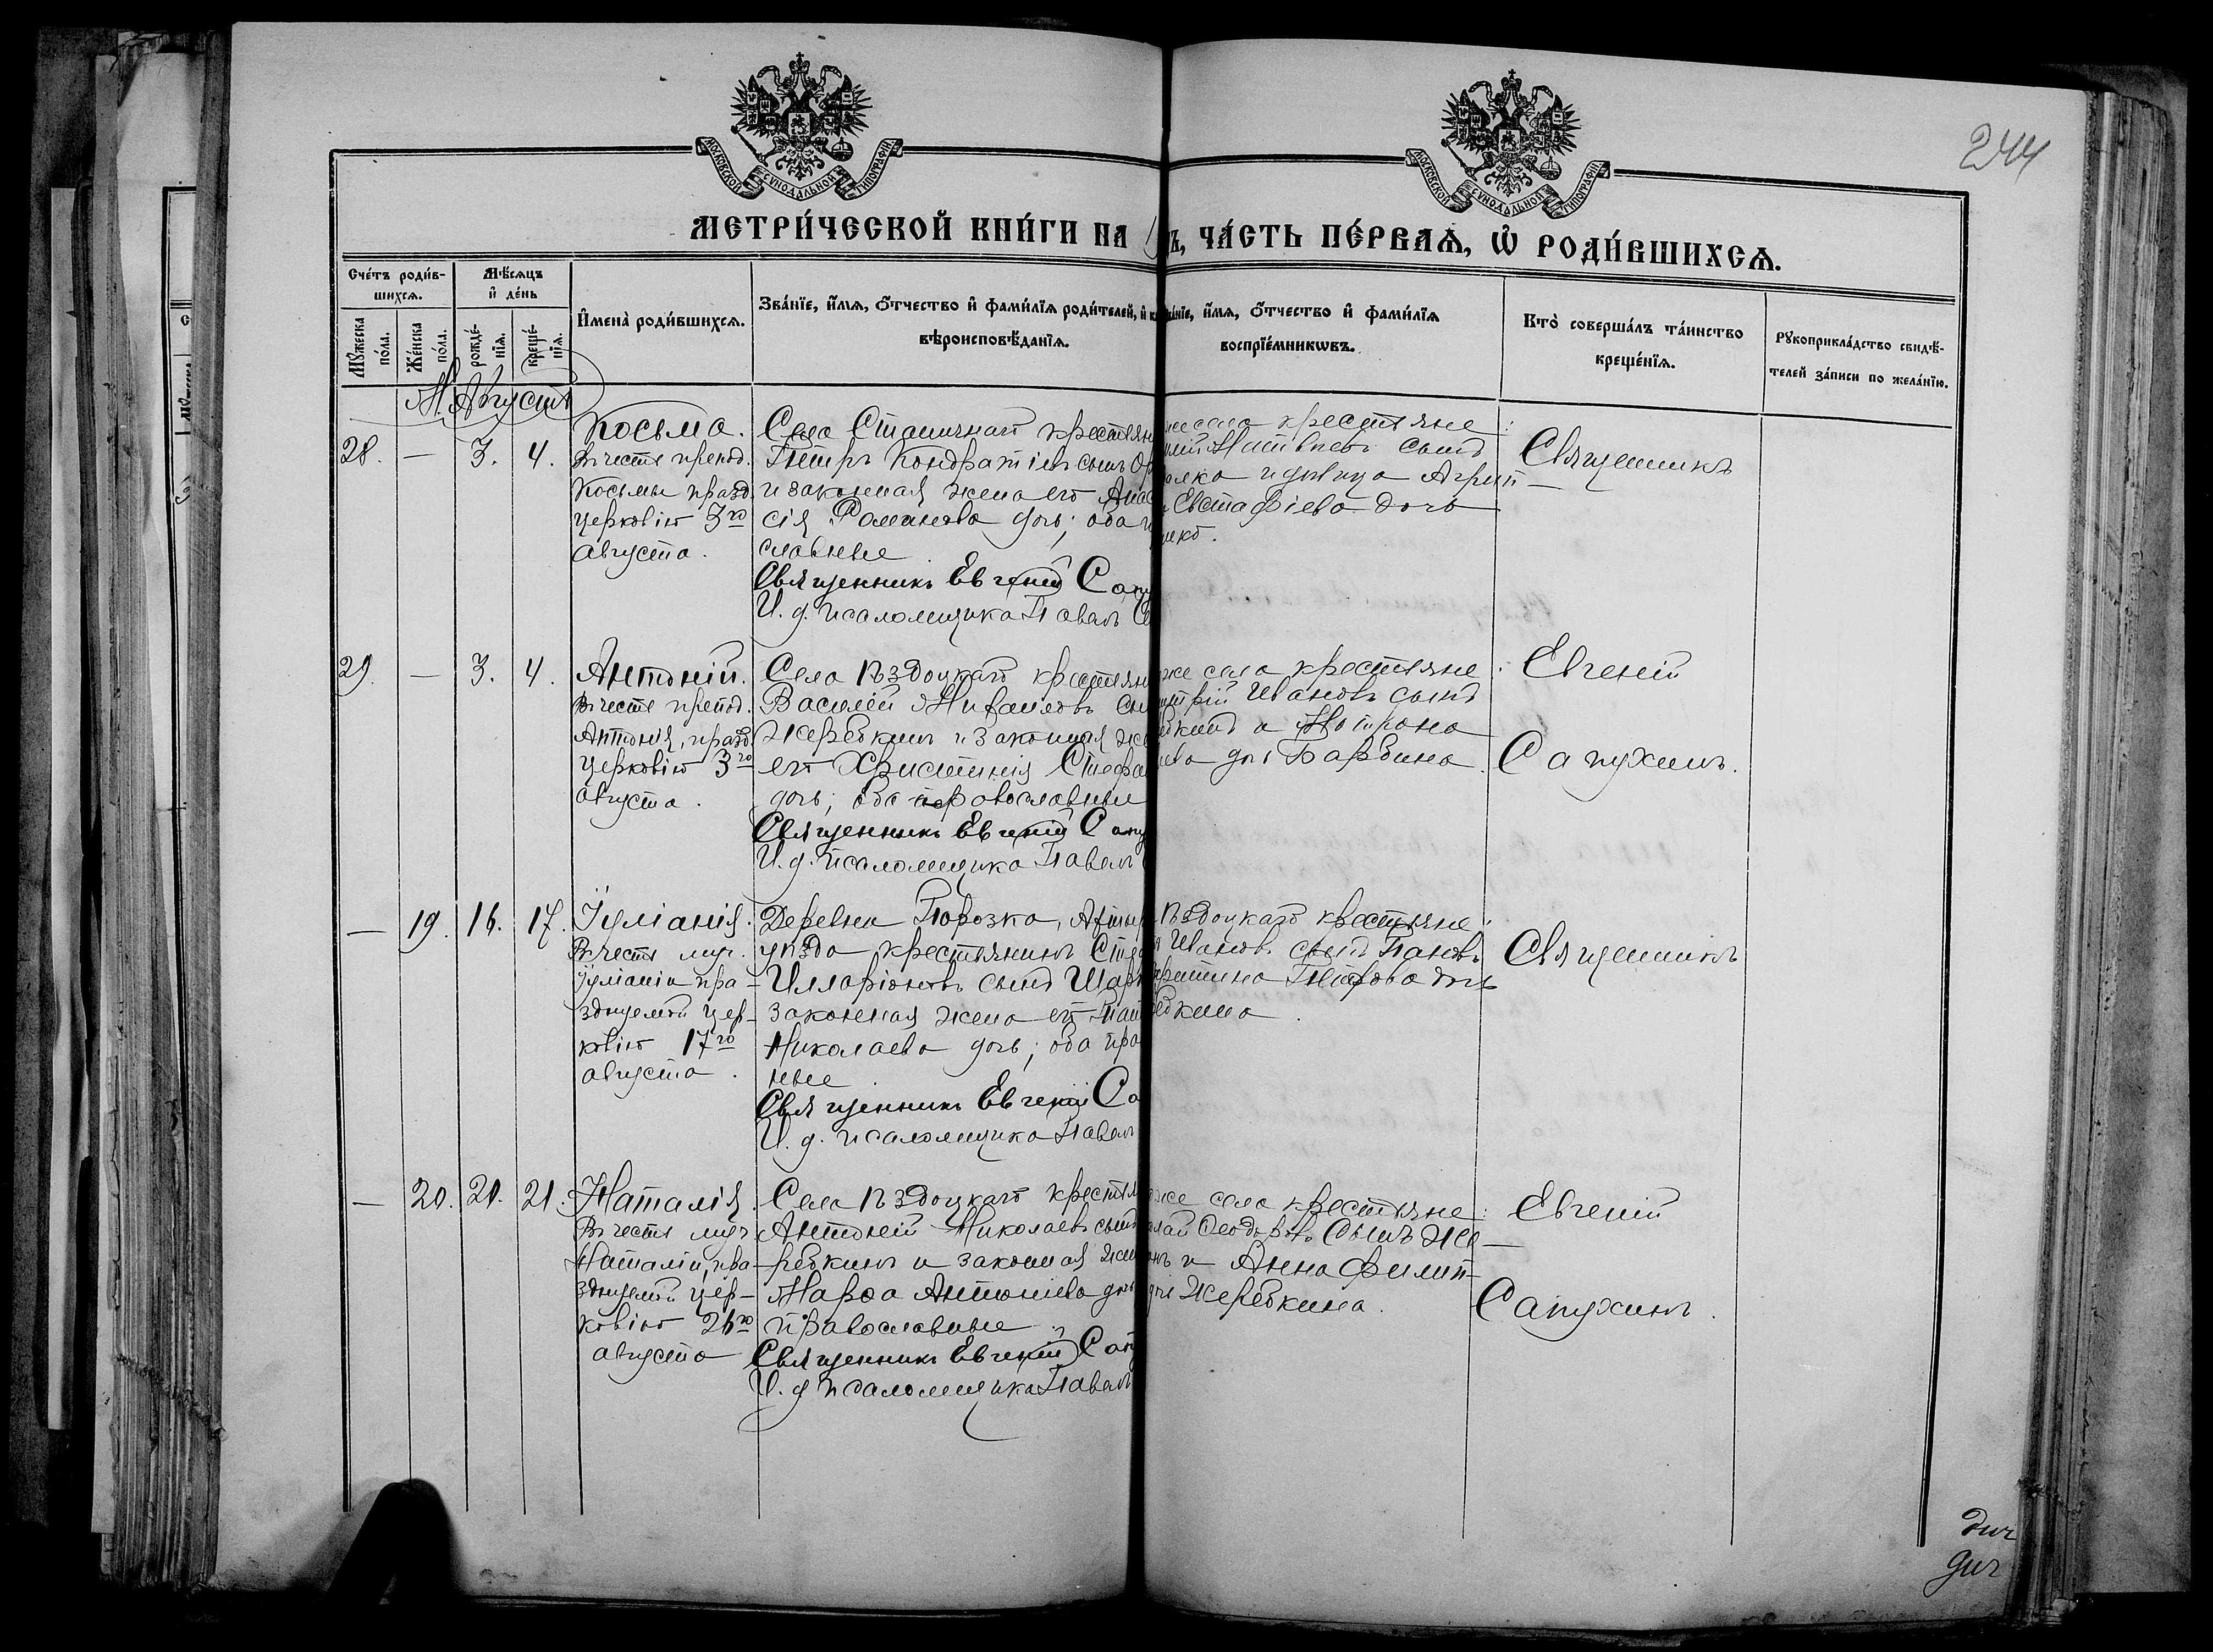 244
МОСКОВСКОЙ СѴНОДАЛЬНОЙ ТИПОГРАФІИ
МОСКОВСКОЙ СѴНОДАЛЬНОЙ ТИПОГРАФІИ
МЕТРИ́ЧЕСКОЙ КНИ́ГИ НА
Ъ, ЧА́СТЬ ПЕ́РВАѦ, Ѽ РОДИ́ВШИХСѦ.
Сче́тъ роди́в-
шихсѧ.
Мѣ́сѧцъ
и҆ де́нь
Мꙋ́жеска
по́ла.
Же́нска
по́ла.
рожде́-
нїѧ.
креще́-
нїѧ.
И҆мена̀ роди́вшихсѧ.
Зва́нїе, и҆́мѧ, ѻ҆́тчество и҆ фами́лїѧ роди́телей, и҆ к
вѣроисповѣ́данїѧ.
ва́нїе, и҆́мѧ, ѻ҆́тчество и҆ фами́лїѧ
воспрїе́мникѡвъ.
Кто̀ соверша́лъ та́инство
креще́нїѧ.
Рꙋкоприкла́дство свидѣ́-
телей за́писи по жела́нїю.
М. Августъ
28. — 3. 4.
Косьма.
Въ честь препод.
Косьмы празд.
церковію 3го
августа.
Села Станичнаго крестьян
Петръ Кондратіевъ сынъ Ор
и законная жена его Анас
сія Романова дочь; оба п
славные
Священникъ Евгеній Сапу
И. д. псаломщика Павелъ
села крестьяне:
Матвѣевъ сынъ
и дѣвица Агрип-
Евстафіева дочь
Священникъ
29. — 3. 4.
Антоній.
Въ честь препод.
Антонія, празд.
церковію 3го
августа.
Села Въздоцкаго крестьян
Василій Михаиловъ сы
Жеребкинъ и законная же
его Христинія Стефа
дочь; оба православные
Священникъ Евгеній Сапу
И. д. псаломщика Павелъ
же села крестьяне:
итрій Ивановъ сынъ
бкинъ и Матрона
ева дочь Барбина.
Евгеній
Сапухинъ.
— 19. 16. 17.
Іуліанія.
Въ честь муч.
Іуліаніи пра-
зднуемой цер-
ковію 17го
августа.
Деревни Порозка, Ахтыр
уѣзда крестьянинъ Сте
Илларіоновъ сынъ Шар
законная жена его
Николаева дочь; оба пра
ные
Священникъ Евгеній Са
И. д. псаломщика Павелъ
Въздоцкаго крестьяне:
Ивановъ сынъ Пановъ
дочь
бкина.
Священникъ
— 20. 20. 21.
Наталія.
Въ честь муч.
Наталіи, пра-
зднуемой цер-
ковію 26го
августа
Села Въздоцкаго крестья
Антоній Николаевъ сынъ
ребкинъ и законная жен
Марѳа Антоніева дочь
православные
Священникъ Евгеній Сап
И. д. псаломщика Павелъ
же села крестьяне:
олай Ѳеодоровъ сынъ Же-
нъ и Анна Филип-
дочь Жеребкина.
Евгеній
Сапухинъ.